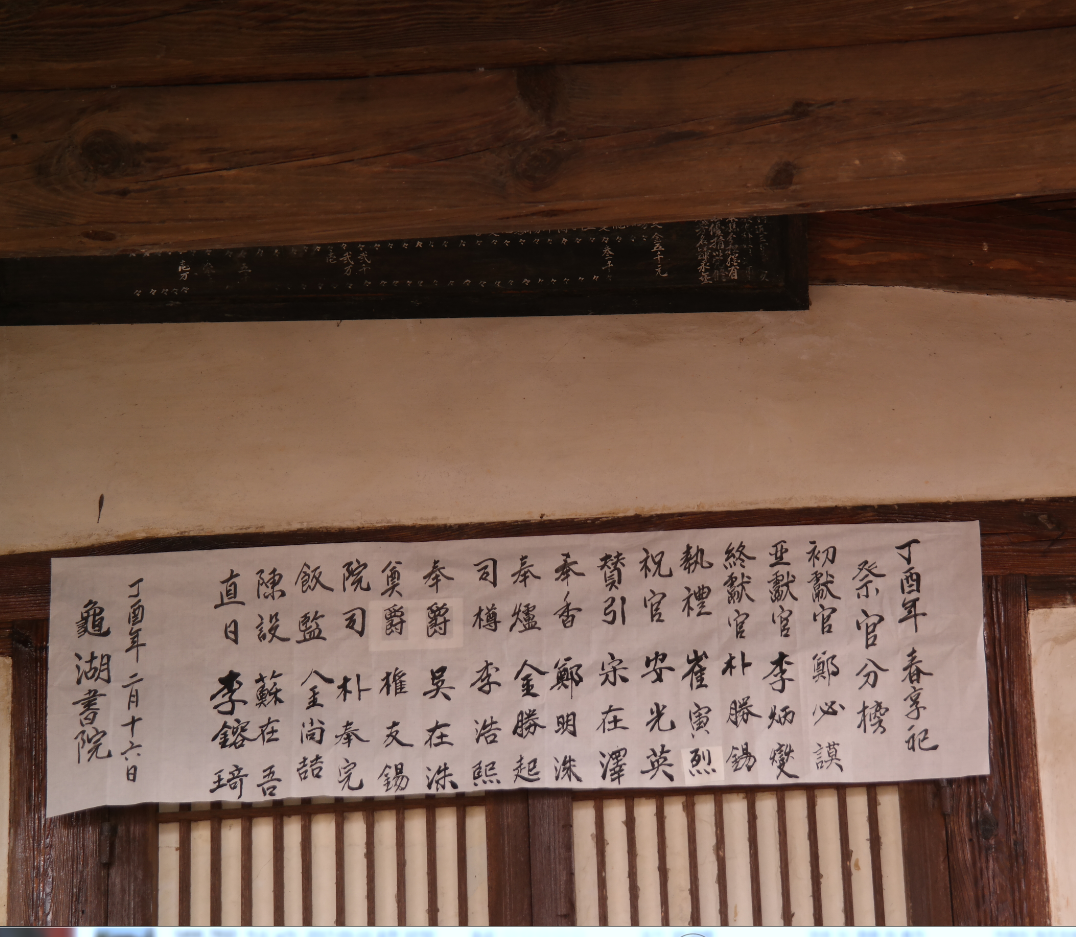 丁酉年 春享祀
祭官分榜
初獻官 鄭必謨
亞獻官 李炳燮
終獻官 朴勝錫
執禮 崔寅烈
祝官 安光英
贊引 宋在澤
奉香 鄭明洙
奉爐 金勝起
司樽 李浩熙
奉爵 吳在洙
奠爵 權友錫
院司 朴奉完
飯監 金尙喆
陳設 蘇在吾
直日 李鎔琦
丁酉年 二月十六日
龜湖書院